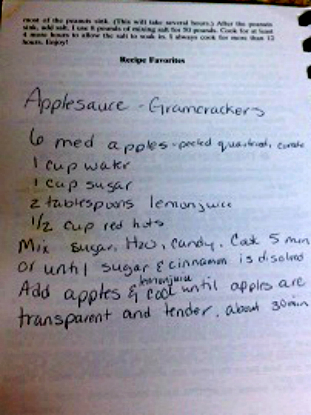 most of the peanuts sink. (This will take several hours.) After the peanuts
sink, add salt. I use 8 pounds of mixing salt for 50 pounds. Cook for at least
4 more hours to allow the salt to soak in. I always cook for more than 12
hours. Enjoy!
Recipe Favorites
Applesauce - Gramcrackers
6 med apples - peeled quartered,
1 cup water
1 cup sugar
2 tablespoons lemonjuice
1/2 cup red hots
Mix sugar, H2O, candy. Cook 5 min
or until sugar & cinnamon is disolved
Add apples & lemonjuice cook until apples are
transparent and tender. about 30 min